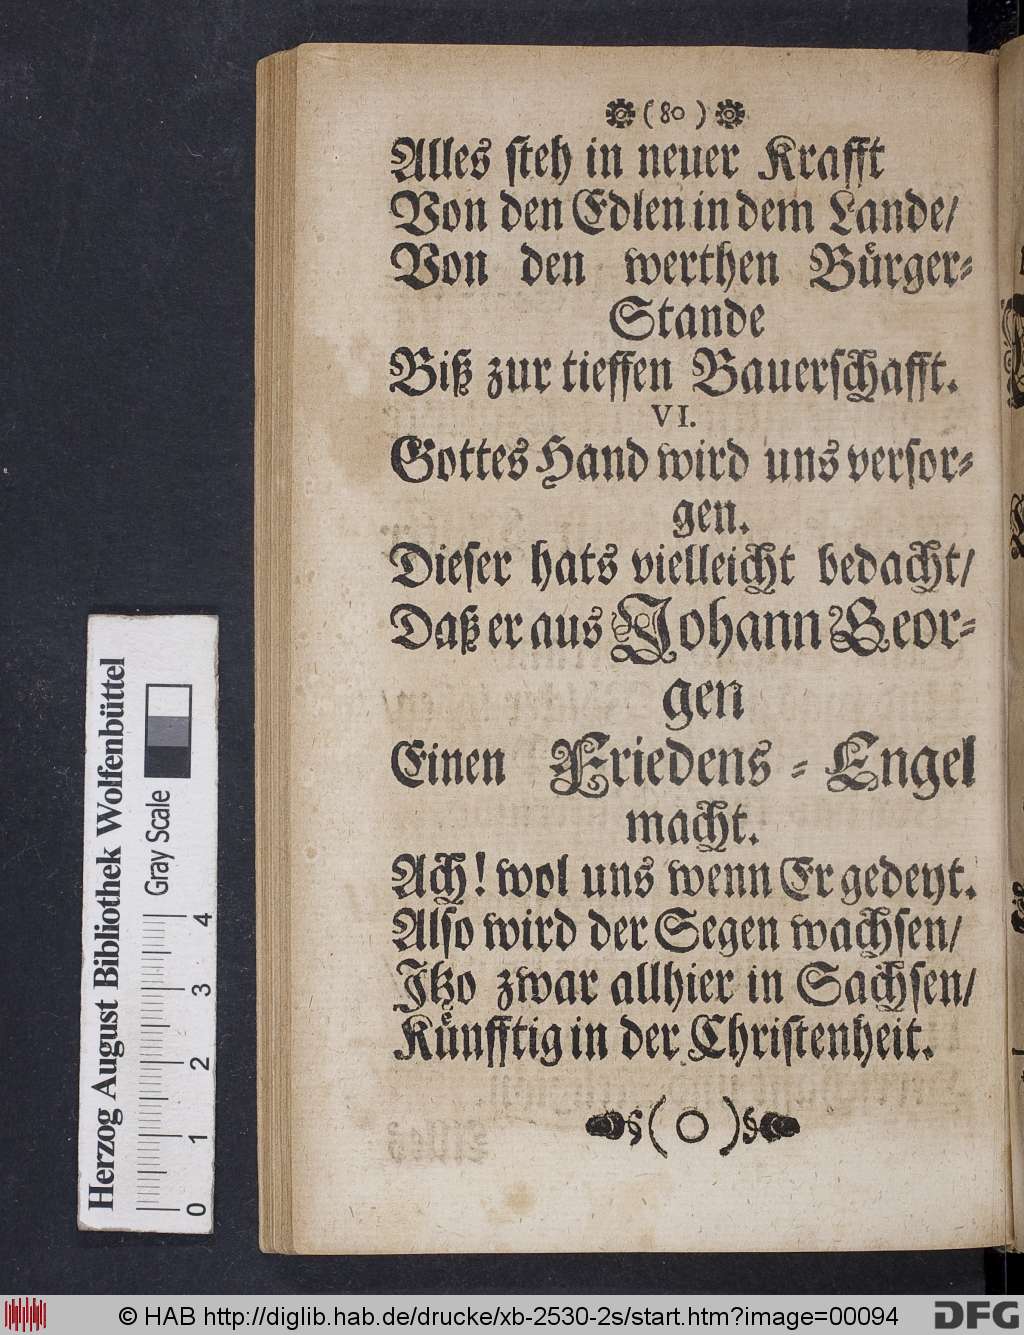 (80)
Alles steh in neuer Krafft
Von den Edlen in dem Lande/
Von den werthen Bürger-
Stande
Biß zur tieffen Bauerschafft.
VI.
Gottes Hand wird uns versor-
gen.
Dieser hats vielleicht bedacht/
Daß er aus Johann Geor-
gen
Einen Friedens-Engel
macht.
Ach! wol uns wenn Er gedeyt.
Also wird der Segen wachsen/
Itzo zwar allhier in Sachsen/
Künfftig in der Christenheit.
Herzog August Bibliothek Wolfenbüttel
Gray Scale
0 1 2 3 4
© HAB http://diglib.hab.de/drucke/xb-2530-2s/start.htm?image=00094
DFG